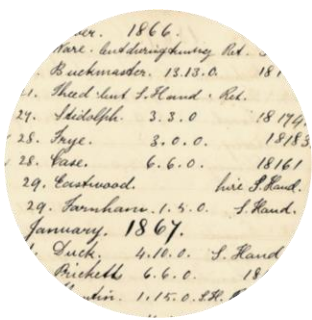 ver. 1866.
Ware. lent during Ret.
Buckmaster. 13.13.0. 181
1. Theed lent S. Hand. Ret.
27. Stidolph. 3.3.0 18179.
28. Frye. 3.0.0. 18183
28. Case. 6.6.0. 18161
29. Eastwood. hire S. Hand.
29. Farnham. 1.5.0. S. Hand.
January. 1867.
Duck. 4.10.0. S. Hand
Brickett 6.6.0. 18
1.15.0. S.H.